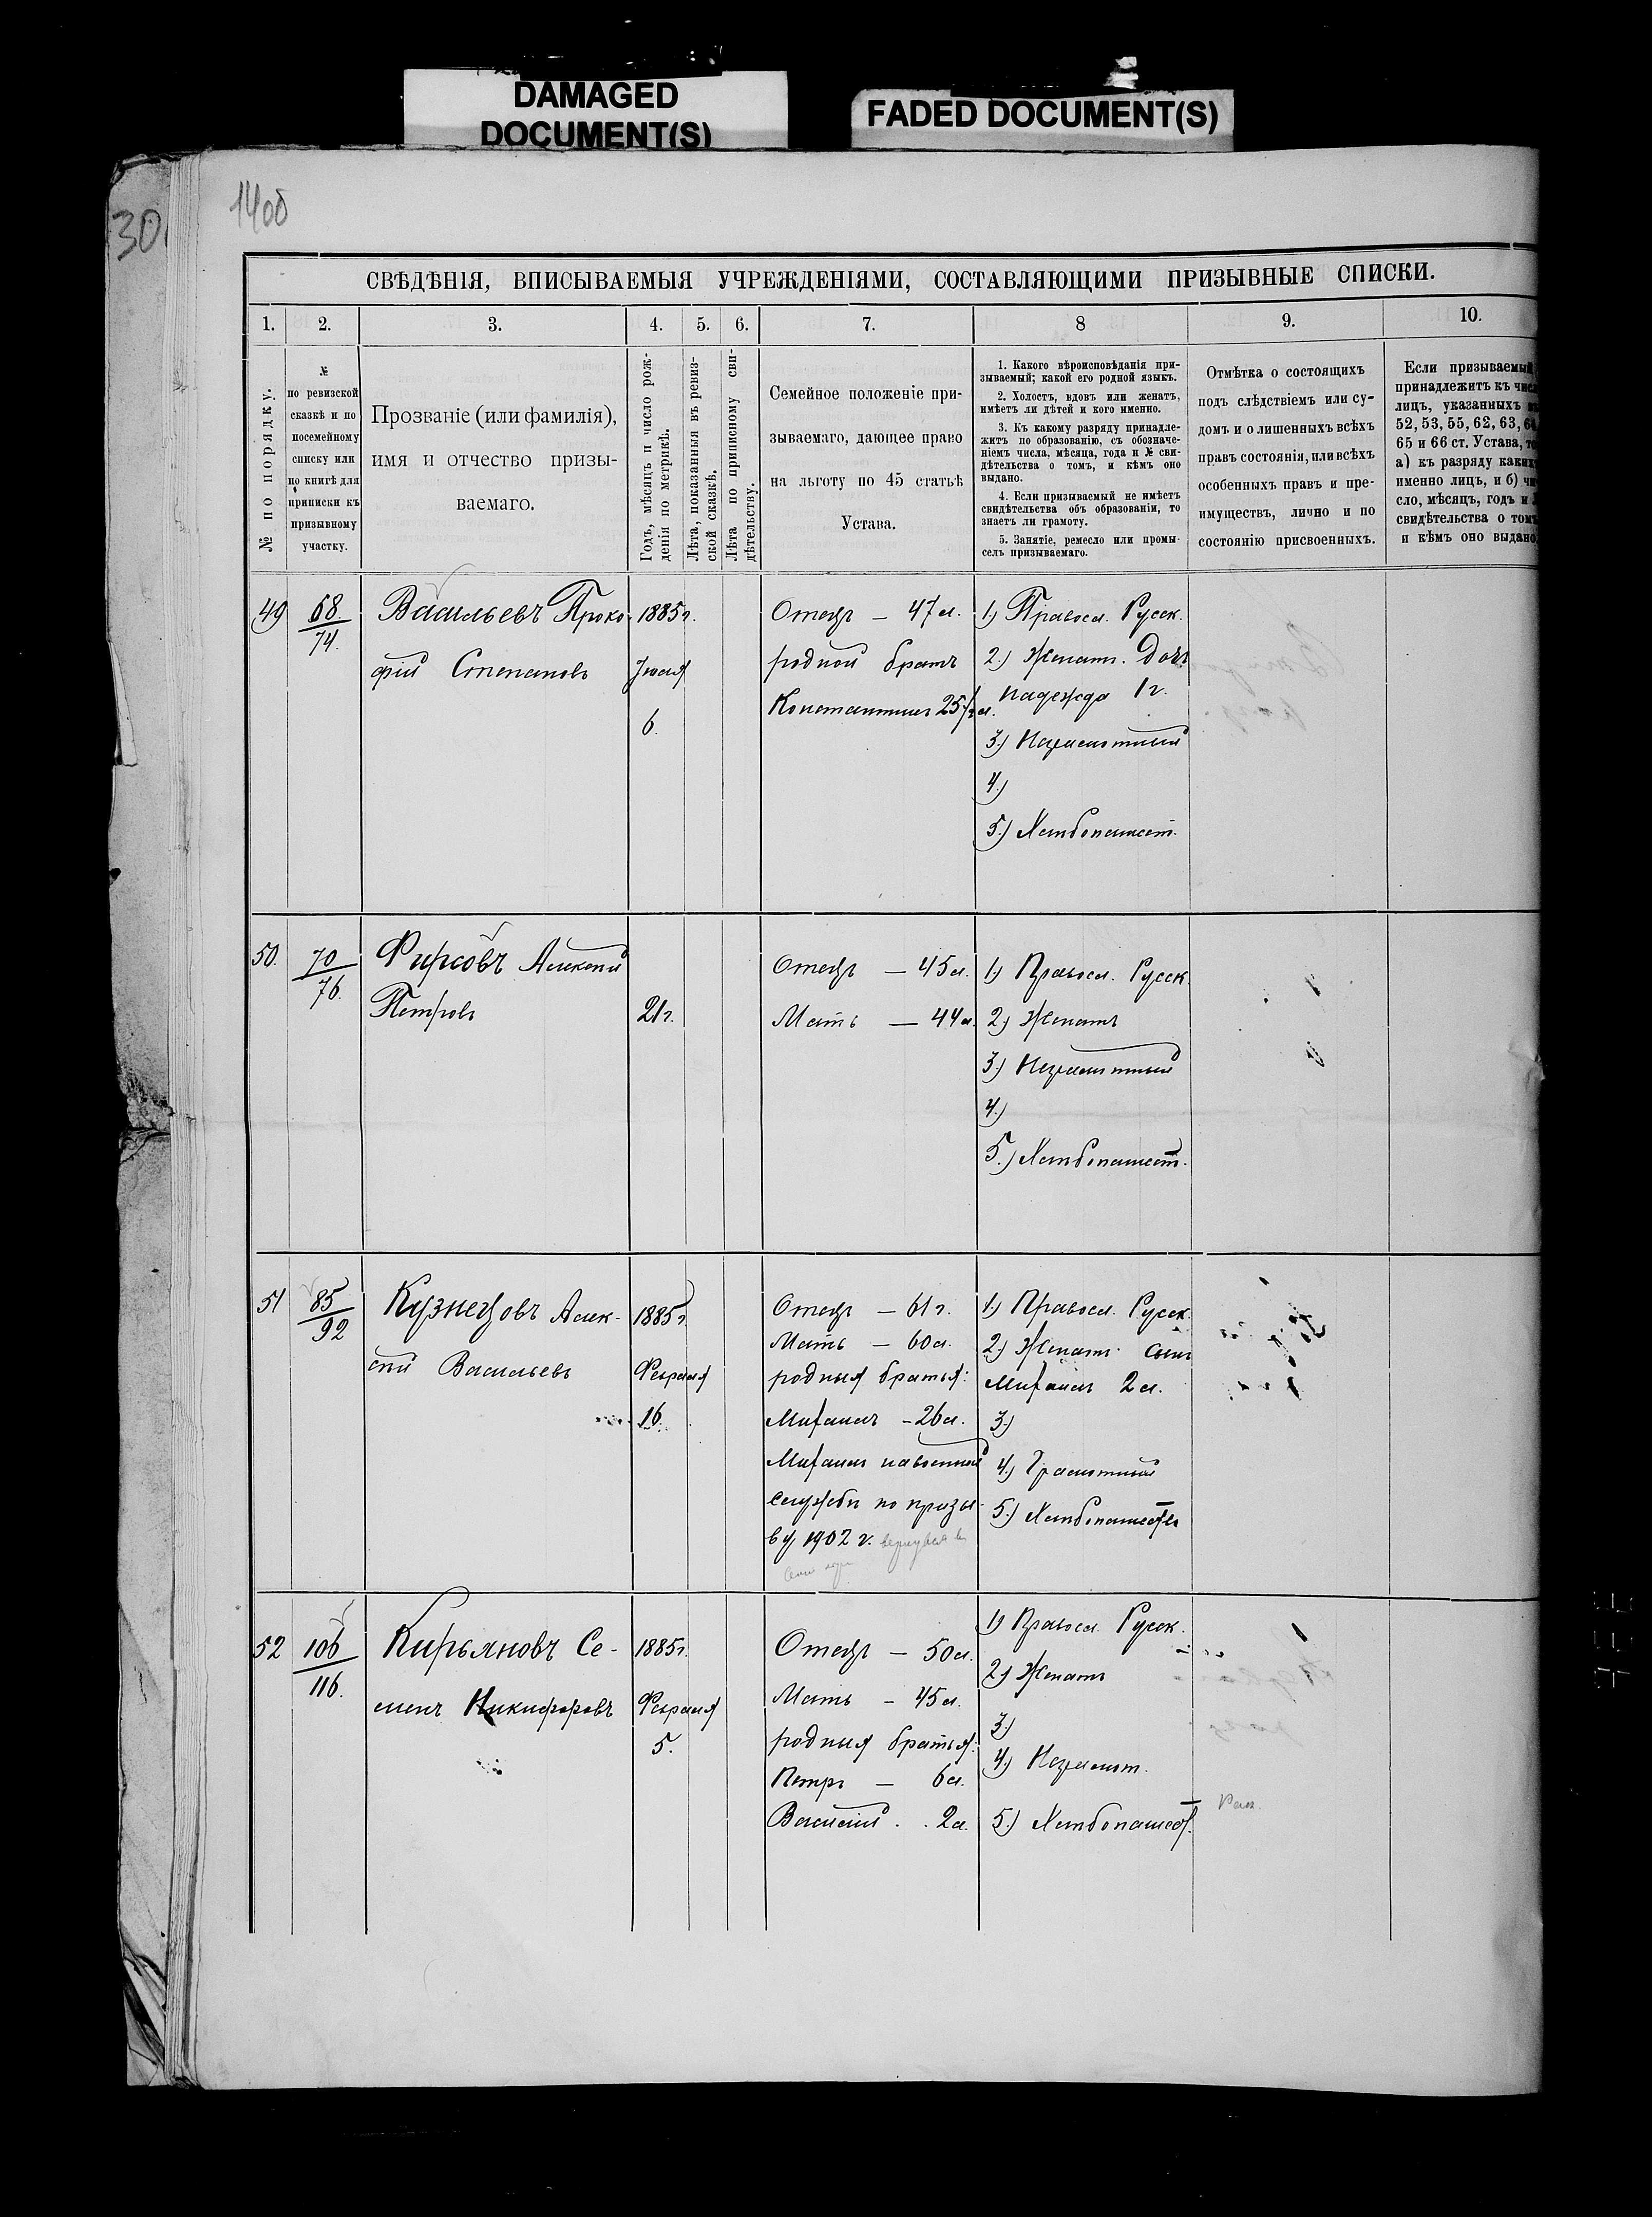 DAMAGED
DOCUMENT(S)
FADED DOCUMENT(S)
30
140об
СВѢДѢНІЯ, ВПИСЫВАЕМЫЯ УЧРЕЖДЕНІЯМИ, СОСТАВЛЯЮЩИМИ ПРИЗЫВНЫЕ СПИСКИ.
1.
2.
3.
4.
5.
6.
7.
8
9.
10.
№ по порядку.
№
по ревизской
сказкѣ и по
посемейному
списку или
по книгѣ для
приписки къ
призывному
участку.
Прозваніе (или фамилія),
имя и отчество призы-
ваемаго.
Годъ, мѣсяцъ и число рож-
денія по метрикѣ.
Лѣта, показанныя въ ревиз-
ской сказкѣ.
Лѣта по приписному сви-
дѣтельству.
Семейное положеніе при-
зываемаго, дающее право
на льготу по 45 статьѣ
Устава.
1. Какого вѣроисповѣданія при-
зываемый; какой его родной языкъ.
2. Холостъ, вдовъ или женатъ,
имѣетъ ли дѣтей и кого именно.
3. Къ какому разряду принадле-
житъ по образованію, съ обозначе-
ніемъ числа, мѣсяца, года и № сви-
дѣтельства о томъ, и кѣмъ оно
выдано.
4. Если призываемый не имѣетъ
свидѣтельства объ образованіи, то
знаетъ ли грамоту.
5. Занятіе, ремесло или промы-
селъ призываемаго.
Отмѣтка о состоящихъ
подъ слѣдствіемъ или су-
домъ и о лишенныхъ всѣхъ
правъ состоянія, или всѣхъ
особенныхъ правъ и пре-
имуществъ, лично и по
состоянію присвоенныхъ.
Если призываемый
принадлежитъ къ чис
лицъ, указанныхъ въ
52, 53, 55, 62, 63, 64,
65 и 66 ст. Устава, то
а) къ разряду какихъ
именно лицъ, и б) чи
сло, мѣсяцъ, годъ и №
свидѣтельства о томъ
и кѣмъ оно выдано.
49
68.
74.
Васильевъ Проко-
фій Степановъ
1885г.
Іюля
6.
Отецъ — 47 л.
родной братъ
Константинъ 25 1/2 л.
1) Правосл. Русск.
2) Женатъ. Дочь
Надежда 1 г.
3) Неграмотный
4)
5) Хлѣбопашест.
50.
70
76.
Фирсовъ Алексѣй
Петровъ
21 г.
Отецъ — 45 л.
Мать — 44 л.
1) Правосл. Русск.
2) Женатъ
3) Неграмотный
4)
5.) Хлѣбопашест.
51
85
92
Кузнецовъ Алек-
сѣй Васильевъ
1885 г.
Февраля
16.
Отецъ — 61 г.
Мать — 60 л.
родныя братья:
Михаилъ - 26 л.
Михаилъ на военной
службѣ по призы-
ву 1902 г. вернулся въ
1) Правосл. Русск.
2) Женатъ. сынъ
Михаилъ 2 л.
3)
4) Грамотный
5) Хлѣбопашество
52
106
116.
Кирьяновъ Се-
менъ Никифоровъ
1885 г.
Февраля
5.
Отецъ — 50 л.
Мать — 45 л.
родныя братья:
Петръ — 6 л.
Василій . . 2 л.
1) Правосл. Русск.
2) Женатъ
3)
4) Неграмот.
5) Хлѣбопашест.